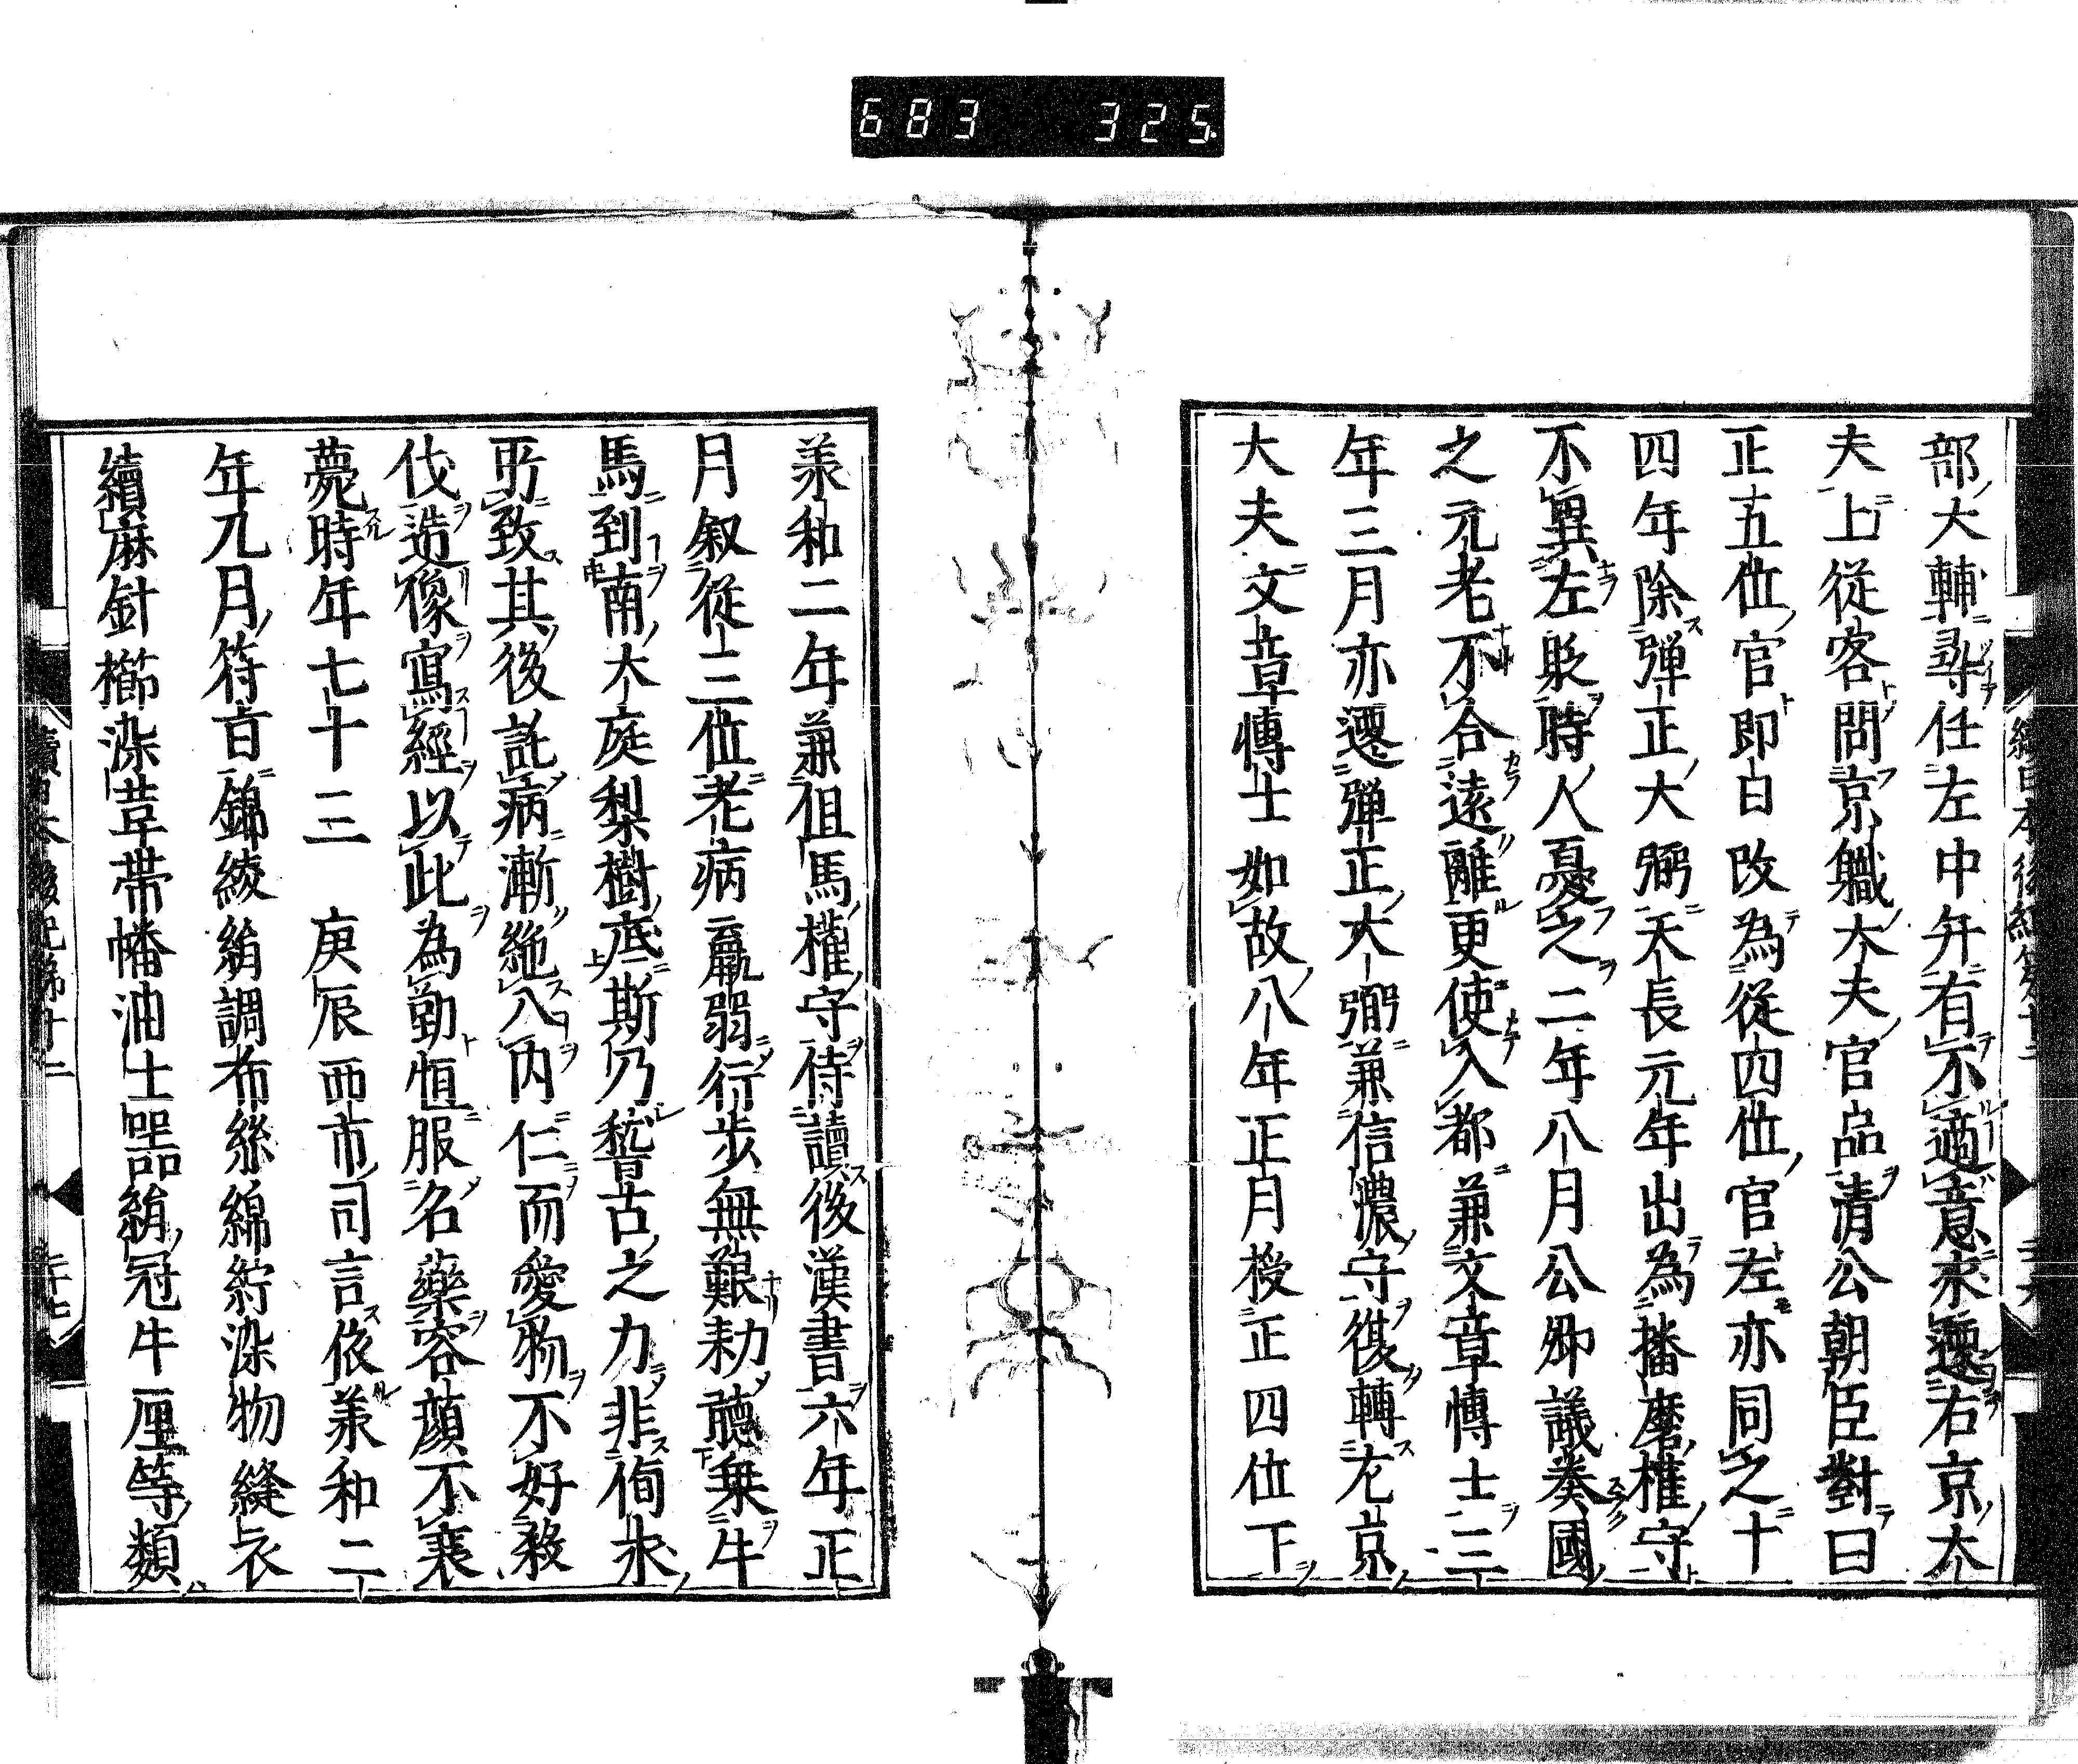 683 325
部大輔尋任左中弁有不適意求遷右京大
夫上從容問京職大夫官品清公朝臣對曰
正五位官即日改為從四位官左亦同之十
四年除弾正大弼天長元年出為播磨権守
不異左貶時人憂之二年八月公卿議奏國
之元老不合遠離更使入都兼文章博士三
年三月亦遷弾正大弼兼信濃守復轉左京
大夫文章博士如故八年正月授正四位下
承和二年兼但馬權守侍讀後漢書六年正
月叙從三位老病羸弱行步無艱勅聽乗牛
馬到南大庭梨樹底斯乃稽古之力非徇求
所致其後託病漸絶入內仁而愛物不好殺
伐造像寫經以此為勤恒服名藥容顏不衰
薨時年七十三 庚辰西市司言依承和二
年九月符旨錦綾絹調布絲綿紵染物縫衣
續麻針櫛染韋帯幡油土器絹冠牛厘等類
續日本後紀第十二
二十七